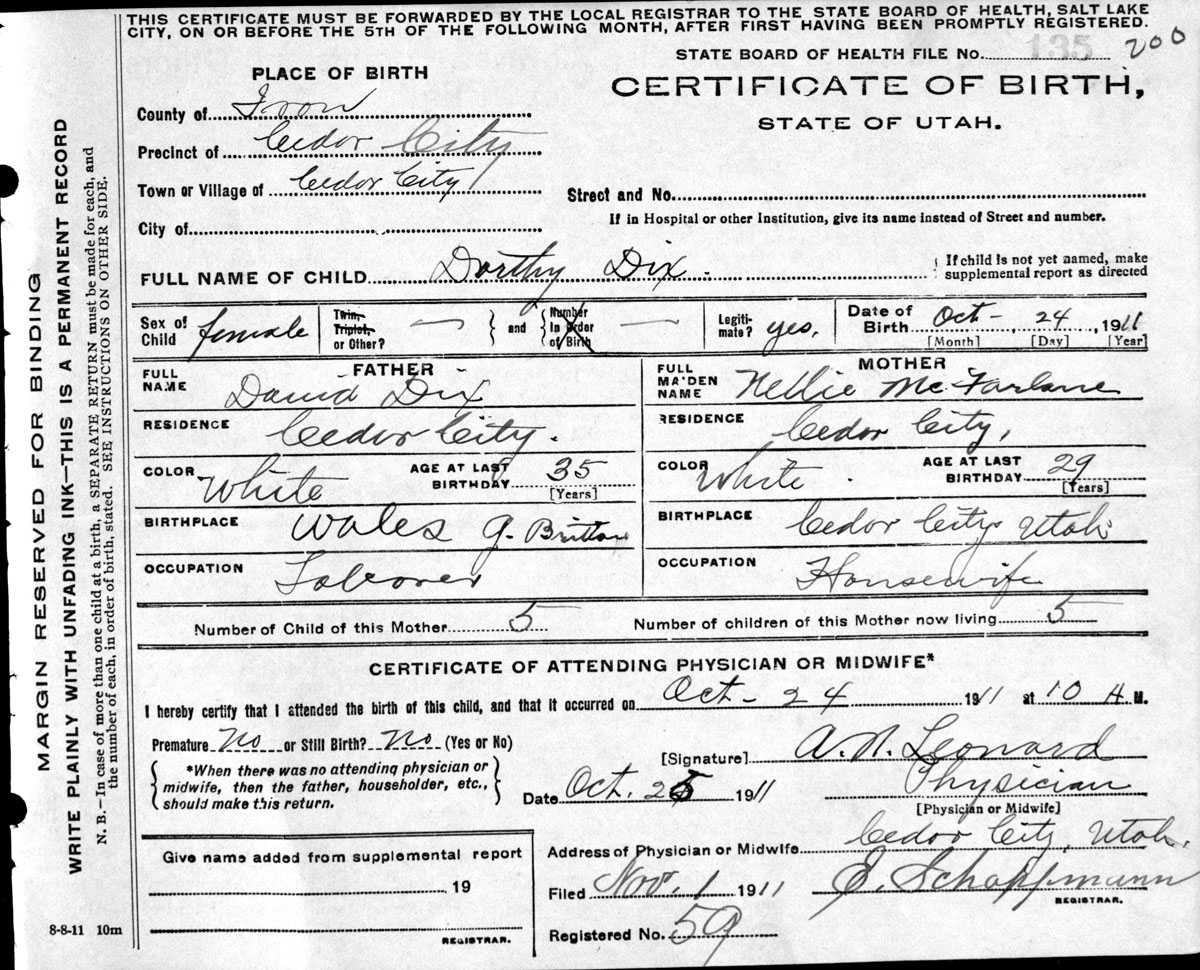 THIS CERTIFICATE MUST BE FORWARDED BY THE LOCAL REGISTRAR TO THE STATE BOARD OF HEALTH, SALT LAKE
CITY, ON OR BEFORE THE 5TH OF THE FOLLOWING MONTH, AFTER FIRST HAVING BEEN PROMPTLY REGISTERED.
STATE BOARD OF HEALTH FILE No. 135 200
PLACE OF BIRTH
CERTIFICATE OF BIRTH,
STATE OF UTAH.
County of Iron
Precinct of Cedar City
Town or Village of Cedar City
Street and No.
If in Hospital or other Institution, give its name instead of Street and number.
City of
FULL NAME OF CHILD Dorthy Dix.
If child is not yet named, make
supplemental report as directed
Sex of Child female
Twin, Triplet, or Other? —
and
Number In Order of Birth —
Legiti-mate? yes,
Date of Birth Oct- 24, 1911
[Month] [Day] [Year]
FATHER
FULL NAME David Dix
RESIDENCE Cedar City.
COLOR White
AGE AT LAST BIRTHDAY 35
[Years]
BIRTHPLACE Wales G. Brittan
OCCUPATION Laborer
MOTHER
FULL MAIDEN NAME Nellie McFarlane
RESIDENCE Cedar City,
COLOR White.
AGE AT LAST BIRTHDAY 29
[Years]
BIRTHPLACE Cedar City Utah
OCCUPATION Housewife
Number of Child of this Mother 5
Number of children of this Mother now living 5
CERTIFICATE OF ATTENDING PHYSICIAN OR MIDWIFE*
I hereby certify that I attended the birth of this child, and that it occurred on Oct- 24 1911 at 10 A. M.
Premature No or Still Birth? No (Yes or No)
*When there was no attending physician or
midwife, then the father, householder, etc.,
should make this return.
[Signature] A. N. Leonard
Physician
[Physician or Midwife]
Date Oct. 25 1911
Address of Physician or Midwife Cedar City, Utah.
Give name added from supplemental report
19
REGISTRAR.
Filed Nov. 1 1911
E. Schoppmann
REGISTRAR.
Registered No. 59
8-8-11 10m
MARGIN RESERVED FOR BINDING
WRITE PLAINLY WITH UNFADING INK—THIS IS A PERMANENT RECORD
N. B.—In case of more than one child at a birth, a SEPARATE RETURN must be made for each, and
the number of each, in order of birth, stated. SEE INSTRUCTIONS ON OTHER SIDE.